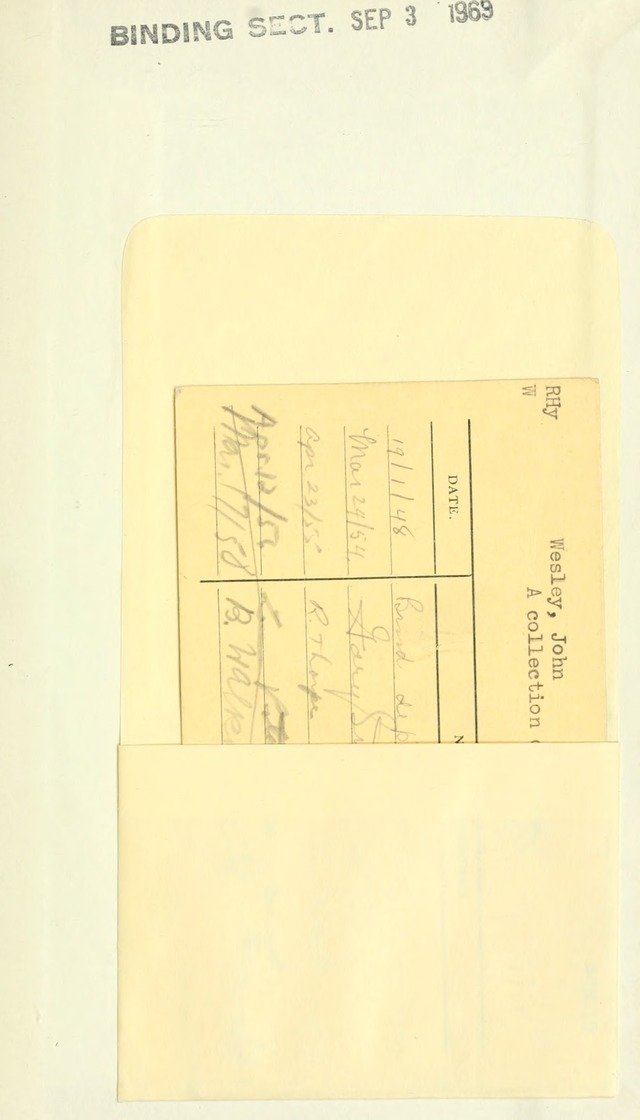 BINDING SECT. SEP 3 1969
RHy
W
Wesley, John
A collection
DATE.
N
19/1/48 Bind dep
Mar 29/54 Gary
Apr 23/55 R. Thorpe
Apr 12/56
Mar. 17/58 B. Walke